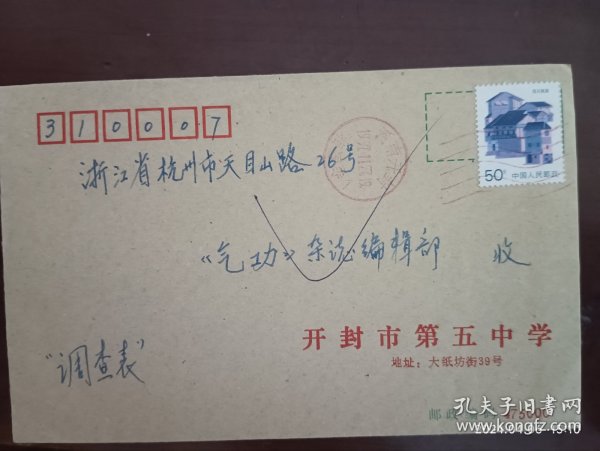 310007
50分
中国人民邮政
浙江省杭州市天目山路26号
《气功》杂志编辑部 收
开封市第五中学
地址：大纸坊街39号
"调查表"
邮政编码 475000
孔夫子旧书网